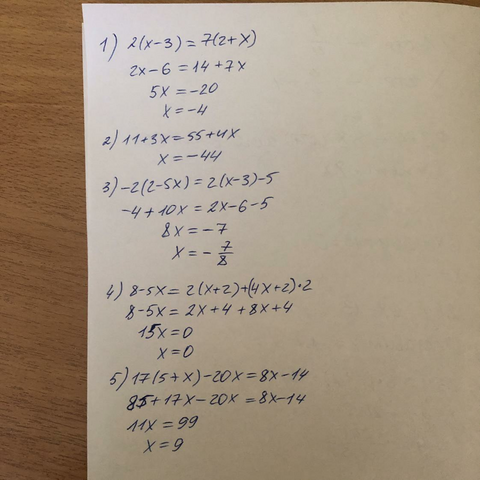 1) 2(x-3) = 7(2+x)
2x-6 = 14+7x
5x = -20
x = -4
2) 11+3x = 55+4x
x = -44
3) -2(2-5x) = 2(x-3)-5
-4+10x = 2x-6-5
8x = -7
x = -7/8
4) 8-5x = 2(x+2)+(4x+2)·2
8-5x = 2x+4+8x+4
15x = 0
x = 0
5) 17(5+x)-20x = 8x-14
85+17x-20x = 8x-14
11x = 99
x = 9